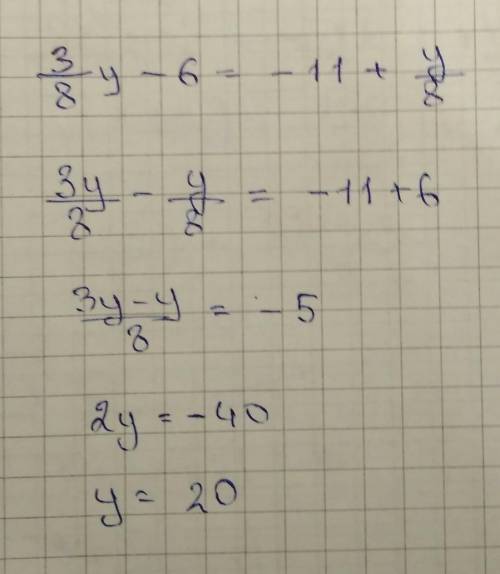 3/8 y - 6 = -11 + y/8
3y/8 - y/8 = -11 + 6
3y - y/8 = -5
2y = -40
y = 20